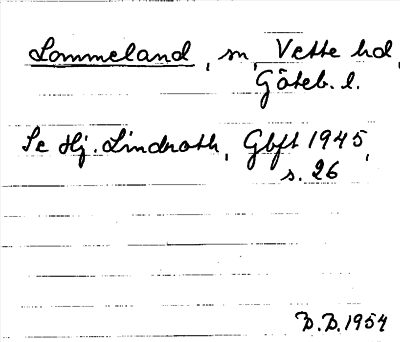 Lommeland, sn, Vette hd,
Göteb. l.
Se Hj. Lindroth, Gbft 1945,
s. 26
B.B. 1954